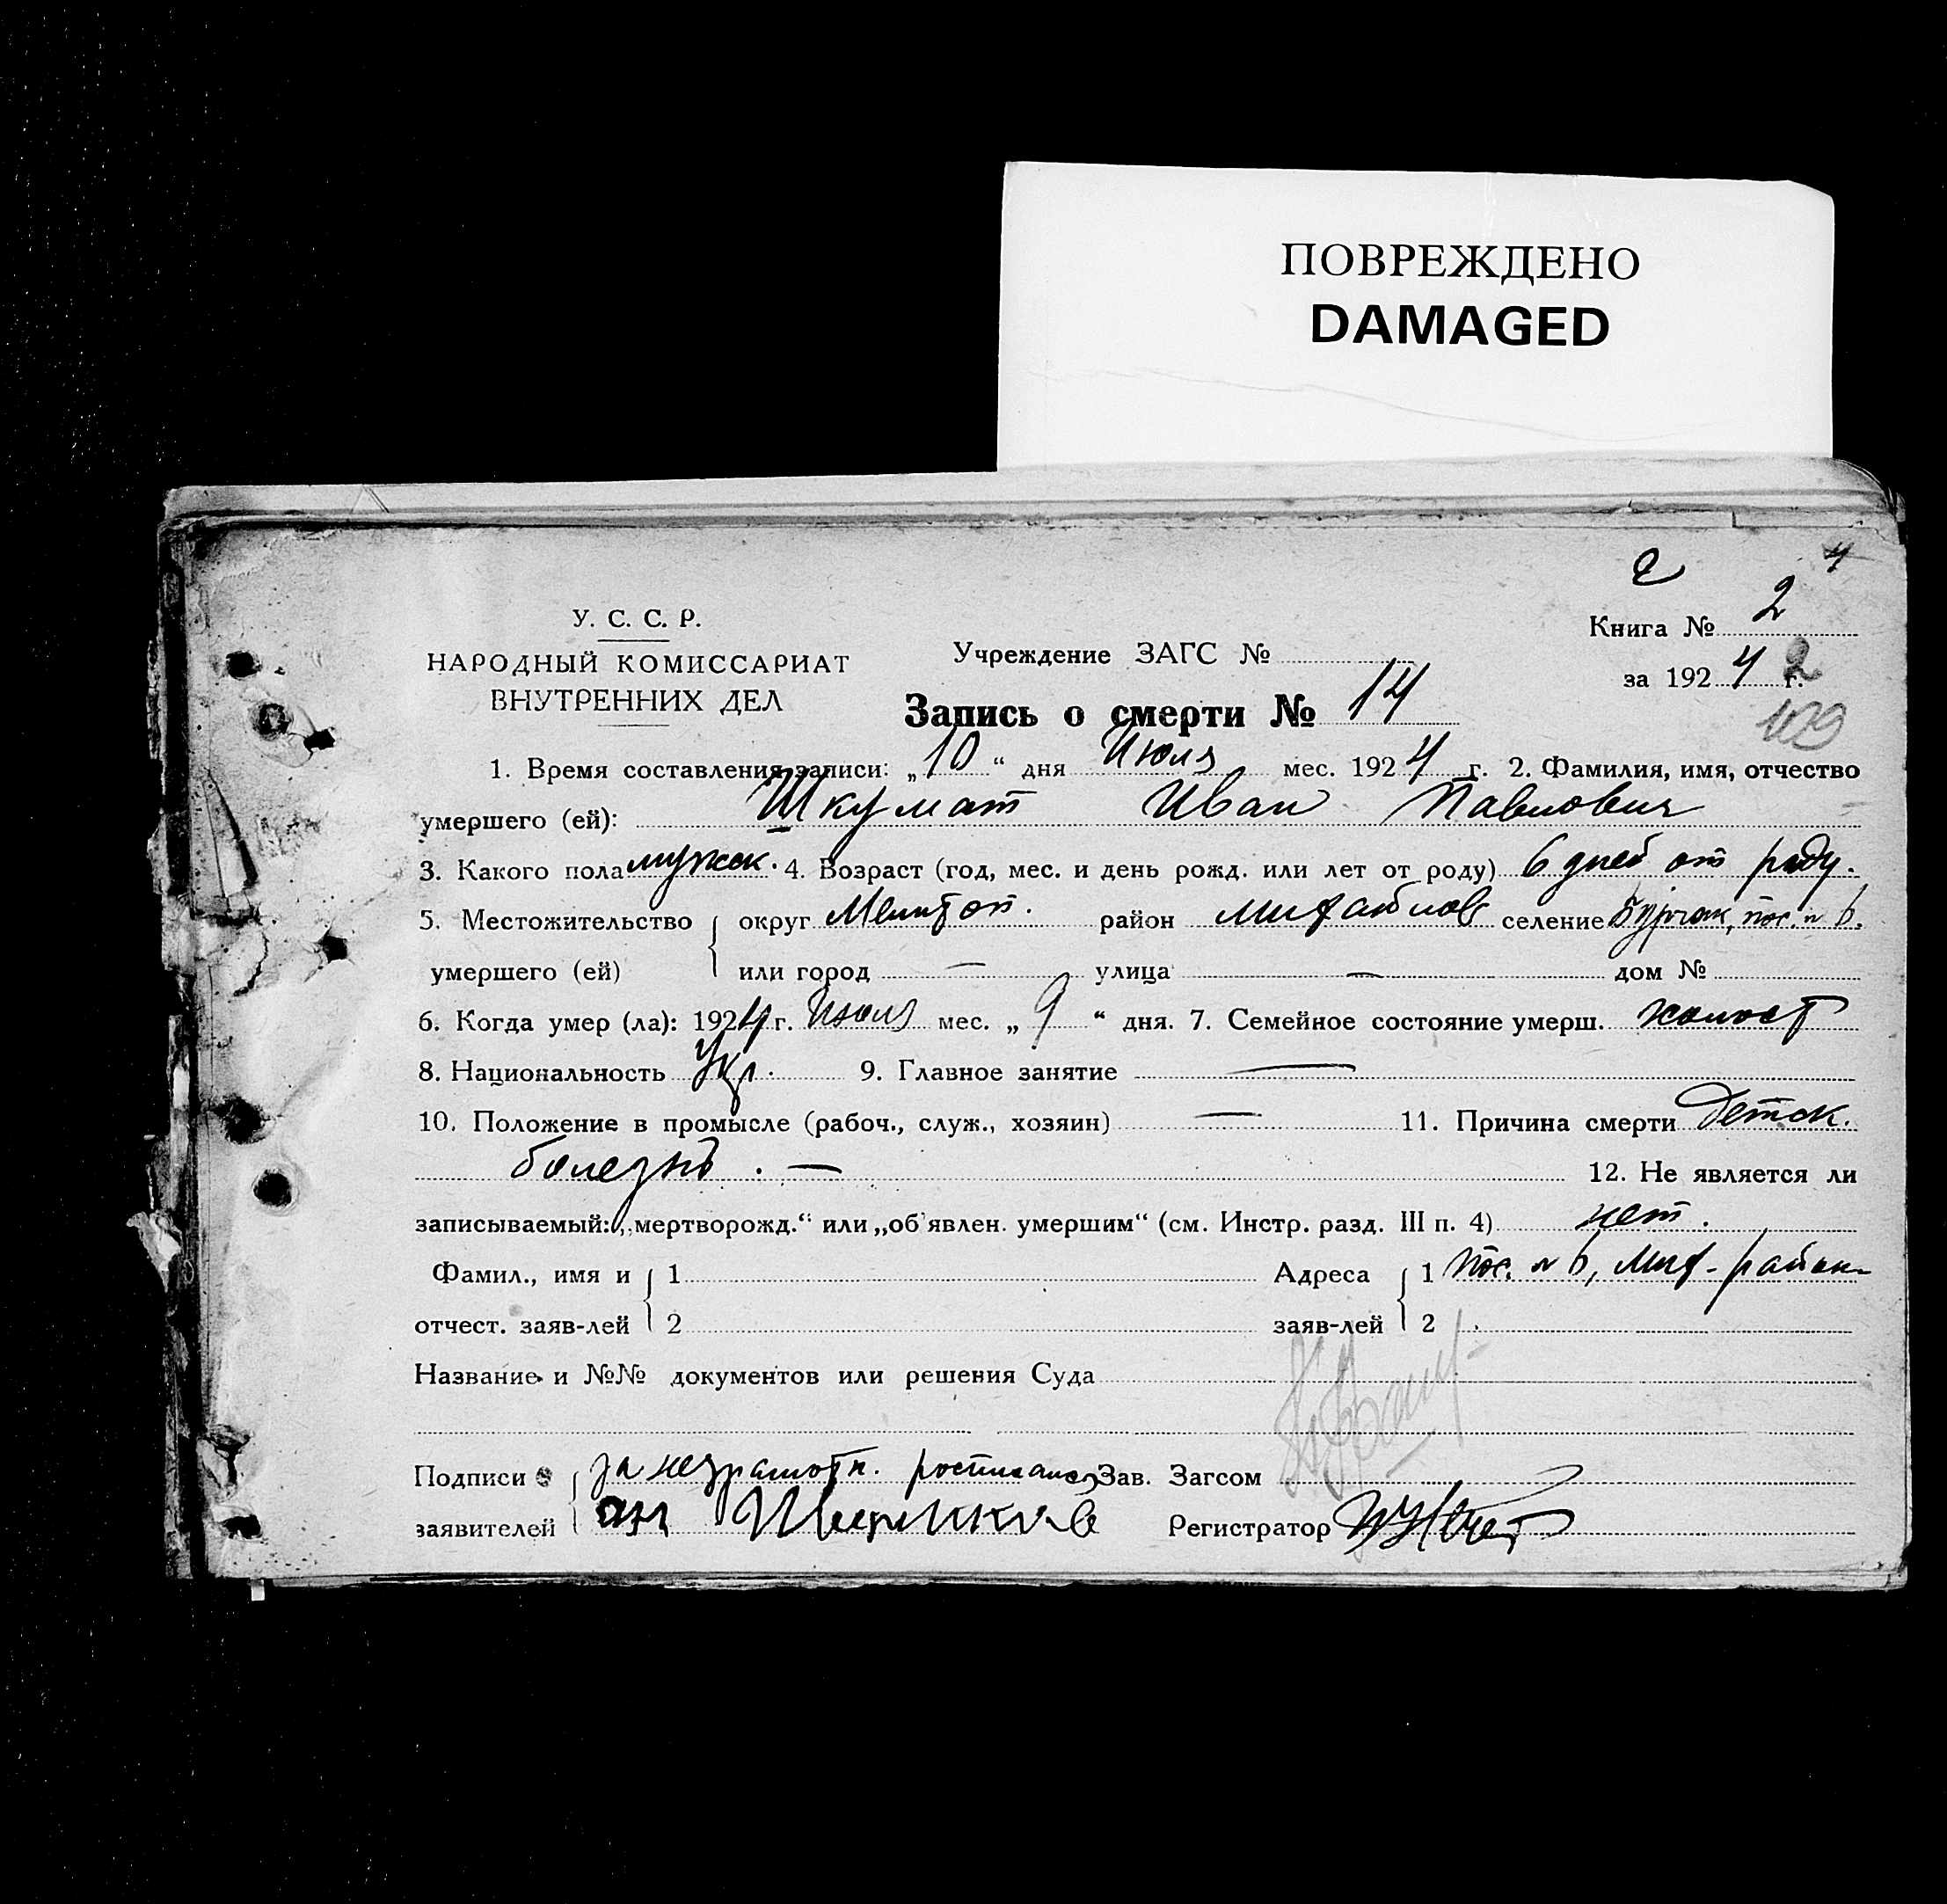 ПОВРЕЖДЕНО
DAMAGED
У. С. С. Р.
НАРОДНЫЙ КОМИССАРИАТ
ВНУТРЕННИХ ДЕЛ
Учреждение ЗАГС №
Запись о смерти № 14
Книга № 2
за 1924 г.
2
109
1. Время составления записи: „10“ дня Июля мес. 1924 г. 2. Фамилия, имя, отчество
умершего (ей): Шкумат Иван Павлович
3. Какого пола мужск. 4. Возраст (год, мес. и день рожд. или лет от роду) 6 дней от роду.
5. Местожительство округ Мелитоп. район Михайлов селение Бурчак, пос. № 6.
умершего (ей) или город — улица — дом №
6. Когда умер (ла): 1924 г. Июля мес. „9“ дня. 7. Семейное состояние умерш. холост
8. Национальность Укр. 9. Главное занятие —
10. Положение в промысле (рабоч., служ., хозяин) — 11. Причина смерти Детск.
болезнь. — 12. Не является ли
записываемый: „мертворожд.“ или „об'явлен. умершим“ (см. Инстр. разд. III п. 4) нет.
Фамил., имя и 1 Адреса 1 Пос. № 6, Мих. район
отчест. заяв-лей 2 заяв-лей 2
Название и №№ документов или решения Суда
Подписи за неграмотн. Зав. Загсом
заявителей Регистратор